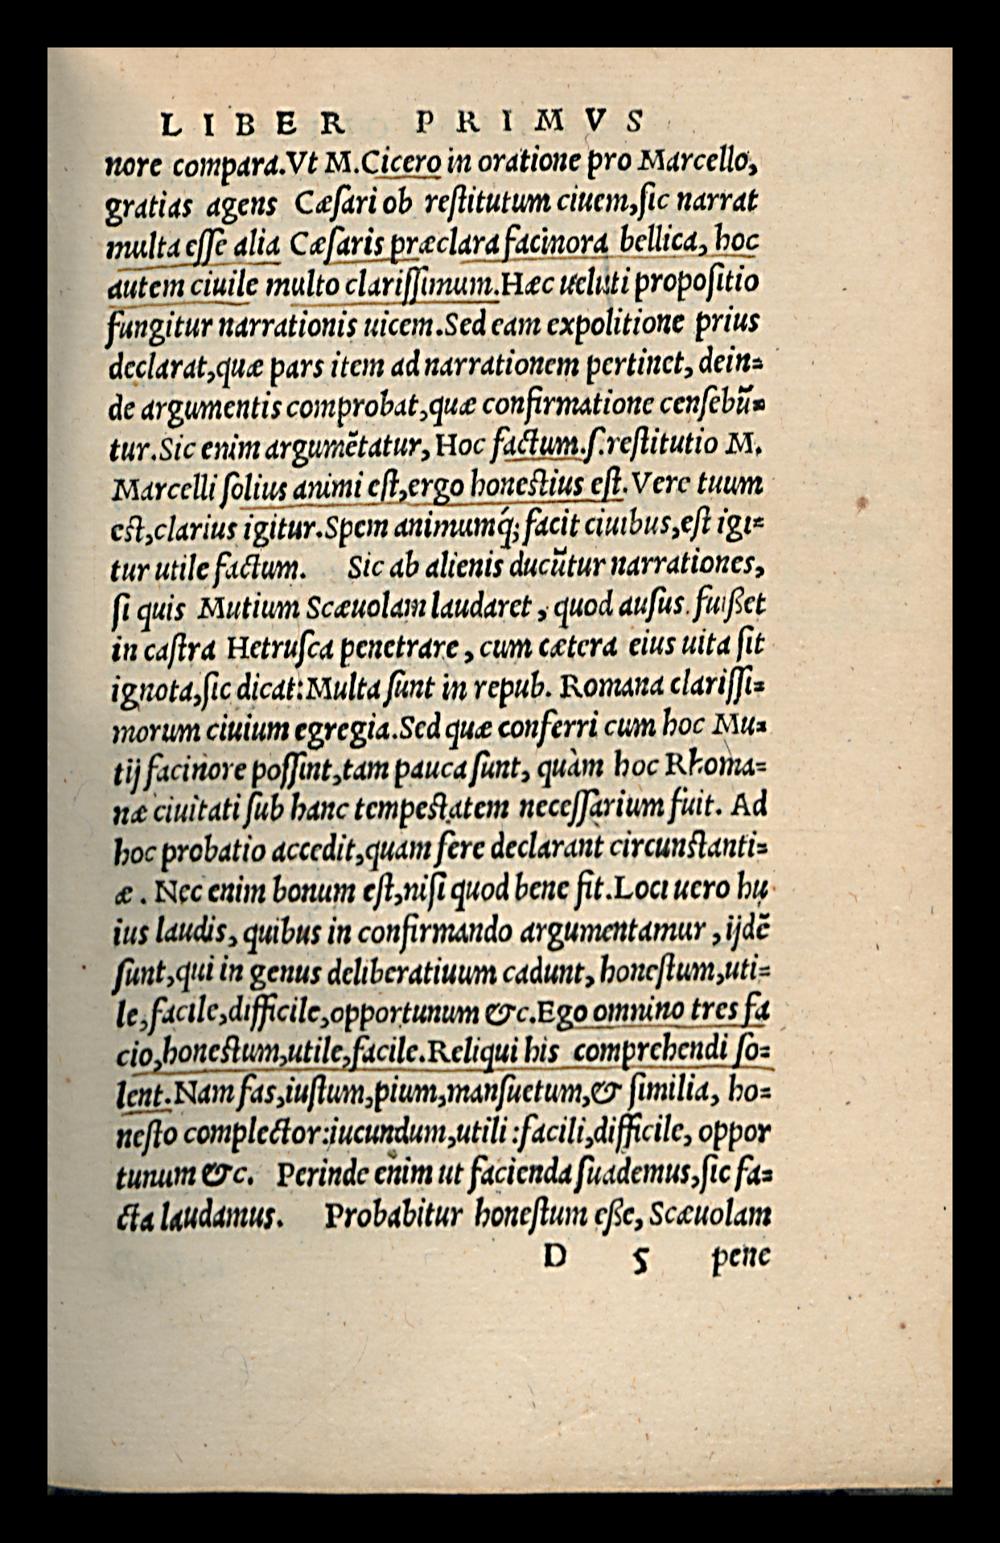 LIBER PRIMVS
nore compara.Vt M.Cicero in oratione pro Marcello,
gratias agens Cæſari ob reſtitutum ciuem,ſic narrat
multa eſſe alia Cæſaris præclara facinora bellica, hoc
autem ciuile multo clariſſimum.Hæc ueluti propoſitio
fungitur narrationis uicem.Sed eam expolitione prius
declarat,quæ pars item ad narrationem pertinet, dein=
de argumentis comprobat,quæ confirmatione cenſebũ=
tur.Sic enim argumẽtatur, Hoc factum.ſ.reſtitutio M.
Marcelli ſolius animi eſt,ergo honeſtius eſt.Vere tuum
eſt,clarius igitur.Spem animumq́; facit ciuibus,eſt igi=
tur utile factum. Sic ab alienis ducũtur narrationes,
ſi quis Mutium Scæuolam laudaret, quod auſus fuiſſet
in caſtra Hetruſca penetrare, cum cætera eius uita ſit
ignota,ſic dicat:Multa ſunt in repub. Romana clariſſi=
morum ciuium egregia.Sed quæ conferri cum hoc Mu=
tij facinore poſſint,tam pauca ſunt, quàm hoc Rhoma=
næ ciuitati ſub hanc tempeſtatem neceſſarium fuit. Ad
hoc probatio accedit,quam fere declarant circunſtanti=
æ. Nec enim bonum eſt,niſi quod bene fit.Loci uero hu
ius laudis, quibus in confirmando argumentamur, ijdẽ
ſunt,qui in genus deliberatiuum cadunt, honeſtum,uti=
le,facile,difficile,opportunum &c.Ego omnino tres fa
cio,honeſtum,utile,facile.Reliqui his comprehendi ſo=
lent.Nam fas,iuſtum,pium,manſuetum,& ſimilia, ho=
neſto complector:iucundum,utili:facili,difficile, oppor
tunum &c. Perinde enim ut facienda ſuademus,ſic fa=
cta laudamus. Probabitur honeſtum eſſe, Scæuolam
D 5 pene